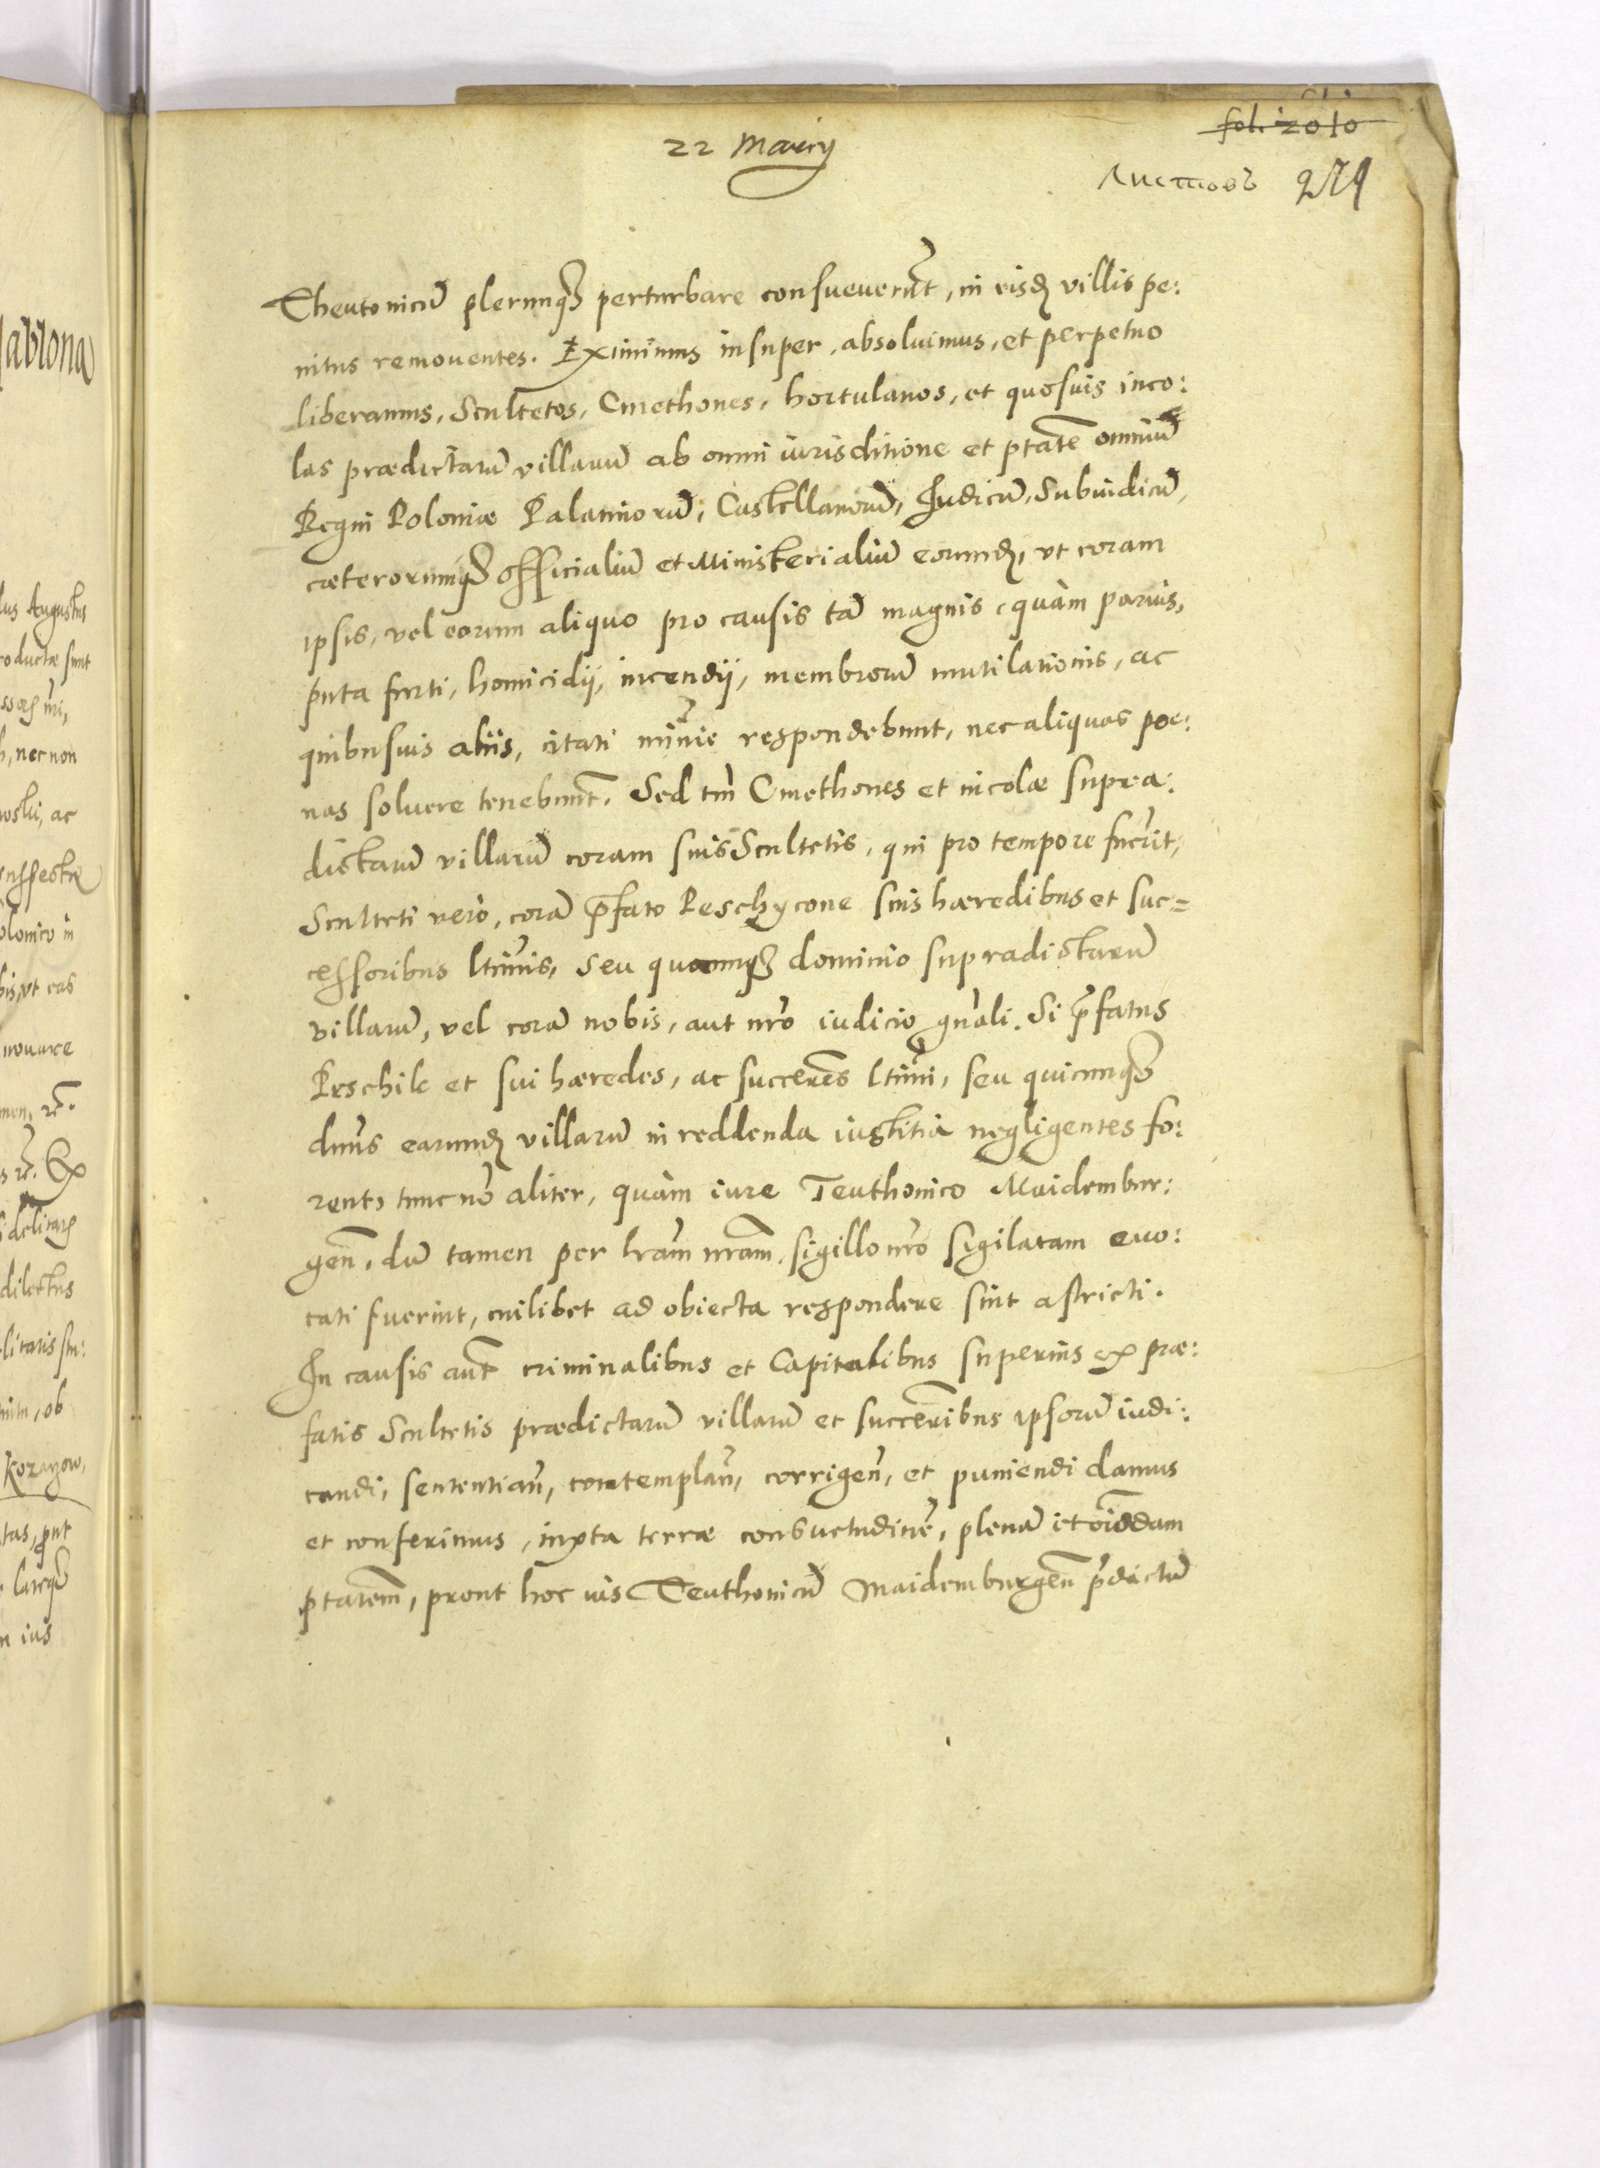 22 Maiij
fol. 2010
Листовъ 279
Theutonicū plerunq₃ perturbare consueverūt, in eisdē villis pe:
nitus removentes. Eximimus insuper, absolvimus, et perpetuo
liberamus, Scultetos, Cmethones, hortulanos, et quosvis inco:
las prædictarū villarū ab omni iurisditione et ptāte omniū
Regni Poloniæ Palatinorū, Castellanorū, Iudicū, Subiudicū,
cæterorumq₃ officialiū et Ministerialiū eorundē, ut coram
ipsis, vel eorum aliquo pro causis tā magnis, quàm parvis,
puta furti, homicidij, incendij, membrorū mutilationis, ac
quibusvis aliis, citati minīe respondebunt, nec aliquas poe:
nas solvere tenebunt̄. Sed tm̄ Cmethones et incolæ supra:
dictarū villarū coram suis Scultetis, qui pro tempore fuerīt,
Sculteti verò, corā p̄fato Peschycone suis hæredibus et suc=
cessoribus ltīmis, seu quocunq₃ dominio supradictarū
villarū, vel corā nobis, aut nr̄o iudicio gn̄ali. Si p̄fatus
Peschik et sui hæredes, ac succēres ltīmi, seu quicunq₃
dnus earundē villarū in reddenda iustitia negligentes fo:
rent, tunc nō aliter, quàm iure Teuthonico Maidembur:
gen̄, dū tamen per lr̄am nr̄am, sigillo nr̄o sigilatam evo:
cati fuerint, cuilibet ad obiecta respondere sint astricti.
In causis aut̄ criminalibus et Capitalibus superius ex præ:
fatis Scultetis prædictarū villarū et succēribus ipsorū iudi:
candi, sententian̄, contemplan̄, corrigen̄, et puniendi damus
et conferimus, iuxta terræ consuetudinē, plenā et oīmodam
ptatem̄, prout hoc ius Teuthonicū Maidemburgen̄ p̄dictū